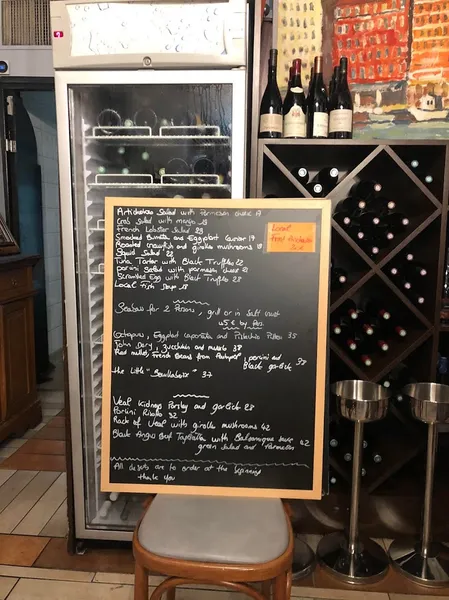 Artichokes Salad with Parmesan cheese 17
Crab Salad with mango
French Lobster Salad 28
Smoked Burrata and Eggplant Caviar 17
Roasted crawfish and girolle mushrooms 19
Squid Salad 22
Tuna Tartar with Black Truffles 22
porcini Salad with parmesan cheese
Scrambled Egg with Black Truffles 28
Local fish Soup 18
Local
Seabass for 2 Persons, grill or in Salt crust
45 € by Pers.
Octopus, Eggplant caponata and Pistachio Pesto 35
John Dory, zucchinis and 38
Red mullet, french Beans from porcini and
Black garlic
the little "Bouillabaisse" 37
Veal Kidneys Parsley and garlick 28
Porcini Risotto 32
Rack of Veal with girolle mushrooms 42
Black Angus Beef Tagliatta with Balsamique sauce 42
green Salad and Parmesan
All deserts are to order at the beginning
thank you